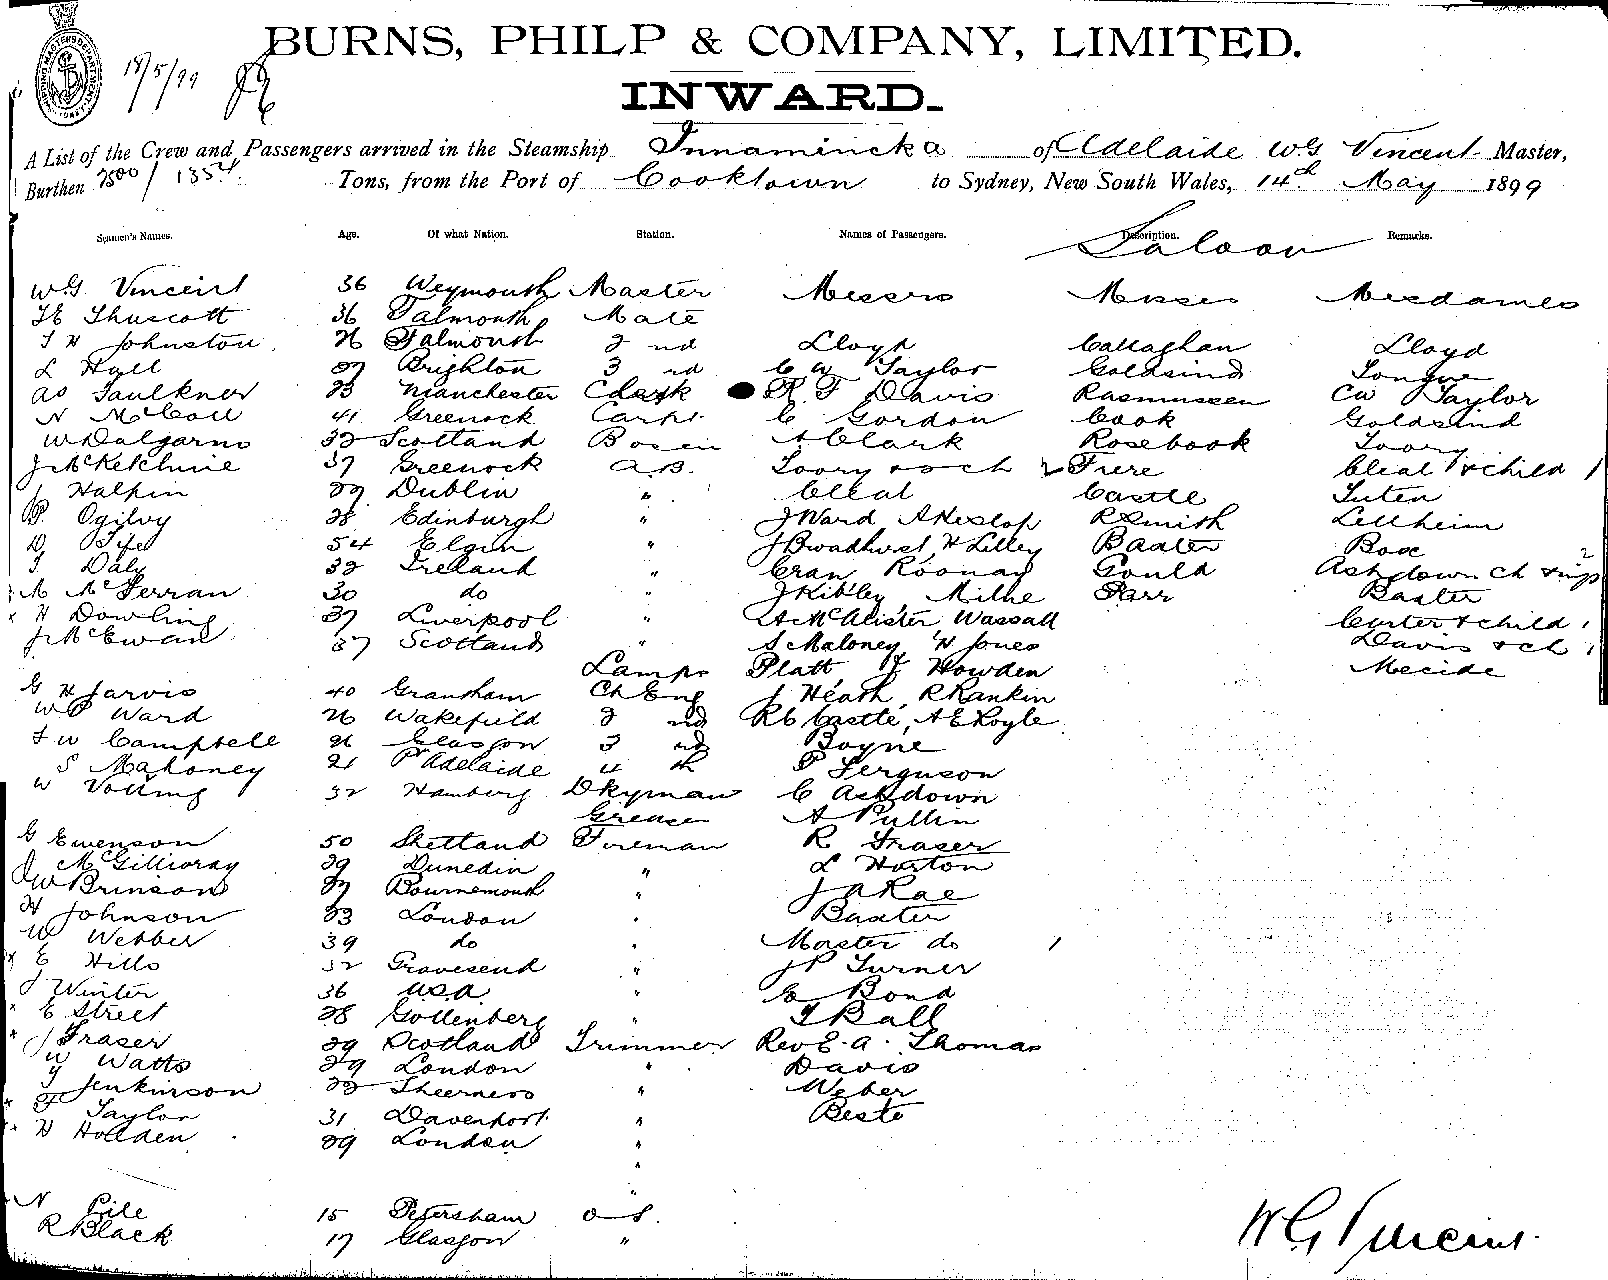 18/5/99
BURNS, PHILP & COMPANY, LIMITED.
INWARD.
A List of the Crew and Passengers arrived in the Steamship Innamincka of Adelaide W.G Vincent Master,
Burthen 2500 / 1354 Tons, from the Port of Cooktown to Sydney, New South Wales, 14th May 1899
Seamen's Names. Age. Of what Nation. Station. Names of Passengers. Description. Remarks.
Saloon
W.G Vincent 36 Weymouth Master Messrs Misses Mesdames
T E Thuscott 36 Falmouth Mate
J H Johnston 26 Falmouth 2nd Lloyd Callaghan Lloyd
L Hall 27 Brighton 3rd C W Taylor Goldsind Tongue
A O Faulkner 23 Manchester Clerk R. F Davis Rasmussen C W Taylor
N McColl 41 Greenock Carpr C Gordon Cook Goldsind
W Dalgarno 32 Scotland Bosen A Clark Rosebook Toory
J McKetchnie 37 Greenock A.B. Toory & ch Frere Cleal & child 1
J Halpin 29 Dublin " Cleal Castle Tuten
P. Ogilvy 28 Edinburgh " J Ward A Heslop R Smith Lellheim
D Fife 54 Elgin " J Broadhurst, H Lilley Baxter Box
T Daly 32 Ireland " Cran Roonay Gould Ashdown Ch & inf 2
M McFerran 30 do " J Kibley, Milne Farr Baxter
x H Dowling 37 Liverpool " A McAlister Wassall Carter & child 1
J McEwan 37 Scotland " S Maloney, H Jones Davis & ch 1
Lamps Platt J Howden Mecide
G H Jarvis 40 Grantham Ch Eng J Heath, R Rankin
W P Ward 26 Wakefield 2nd R C Castle, A E Hoyle
J W Campbell 26 Glasgow 3rd Boyne
S Mahoney 21 Pt Adelaide 4th P Ferguson
W Volling 32 Hamberg Dkyman C Ashdown
Greaser A Pullin
G Ewenson 50 Shetland Fireman R Fraser
J McGillivray 29 Dunedin " L Horton
W Brinson 27 Bournemouth " J A Rae
H Johnson 23 London " Baxter
W Webber 39 do " Master do 1
x E Hills 32 Gravesend " J P Turner
J Winter 36 U.S.A. " G Bond
E Street 28 Gottenberg " T Ball
J Fraser 29 Scotland Trimmer Rev E. A. Thomas
W Watts 29 London " Davis
Jenkinson 22 Sheerness " Weber
Taylor 31 Davenport " Beste
H Holden 29 London "
"
"
N Pile 15 Petersham O S.
R Black 17 Glasgow "
W G Vincent.